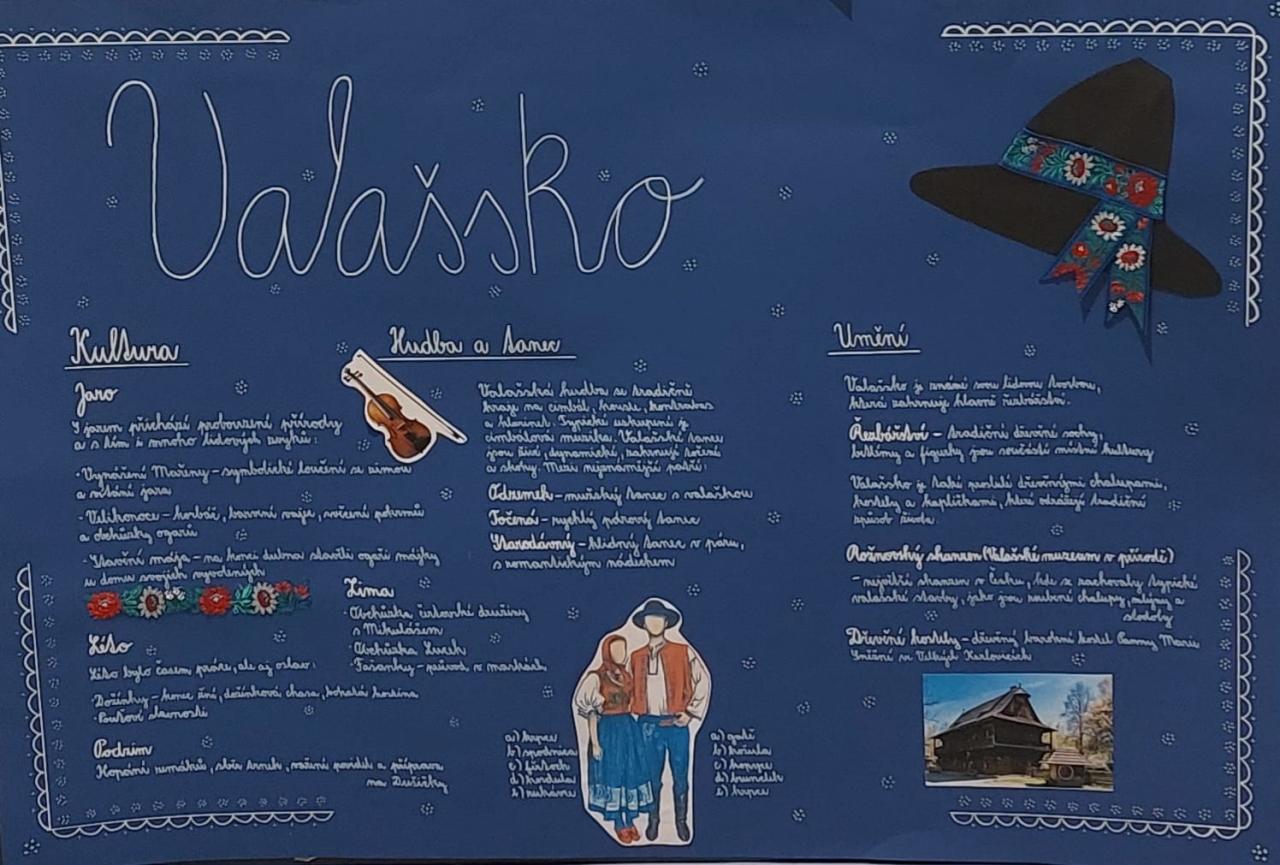 Valašsko
Kultura
Jaro
S jarem přichází probouzení přírody
a s tím i mnoho lidových zvyků:
- Vynášení Mařeny – symbolické loučení se zimou
a vítání jara
- Velikonoce – korbáč, barvení vajec, svěcení pokrmů
a obchůzky ogarů
- Stavění mája – na konci dubna stavěli ogaři májky
u domu svojich vyvolených
Léto
Léto bylo časem práce, ale aj oslav:
- Dožínky – konec žní, dožínková chasa, bohatá hostina
- Pouťové slavnosti
Podzim
Kopání zemáků, sběr trnek, vaření povidel a příprava
na Dušičky
Zima
- Obchůzka čertovské družiny
s Mikulášem
- Obchůzka Lucek
- Fašanky – průvod v maskách
Hudba a tanec
Valašská hudba se tradičně
hraje na cimbál, housle, kontrabas
a klarinet. Typické uskupení je
cimbálová muzika. Valašské tance
jsou živé, dynamické, zahrnují točení
a skoky. Mezi nejznámější patří:
Odzemek – mužský tanec s valaškou
Točená – rychlý párový tanec
Starodávný – klidný tanec v páru,
s romantickým nádechem
a) krpce
b) spodnica
c) fěrtoch
d) kordula
e) rukávce
a) gatě
b) košula
c) kopyce
d) brunclek
e) krpce
Umění
Valašsko je známé svou lidovou tvorbou,
která zahrnuje hlavně řezbářství.
Řezbářství – tradiční dřevěné sochy,
betlémy a figurky jsou součástí místní kultury
Valašsko je také proslulé dřevěnými chalupami,
kostely a kapličkami, které odrážejí tradiční
způsob života.
Rožnovský skanzen (Valašské muzeum v přírodě)
– největší skanzen v Česku, kde se zachovaly typické
valašské stavby, jako jsou roubené chalupy, mlýny a
stodoly
Dřevěné kostely – dřevěný barokní kostel Panny Marie
Sněžné ve Velkých Karlovicích